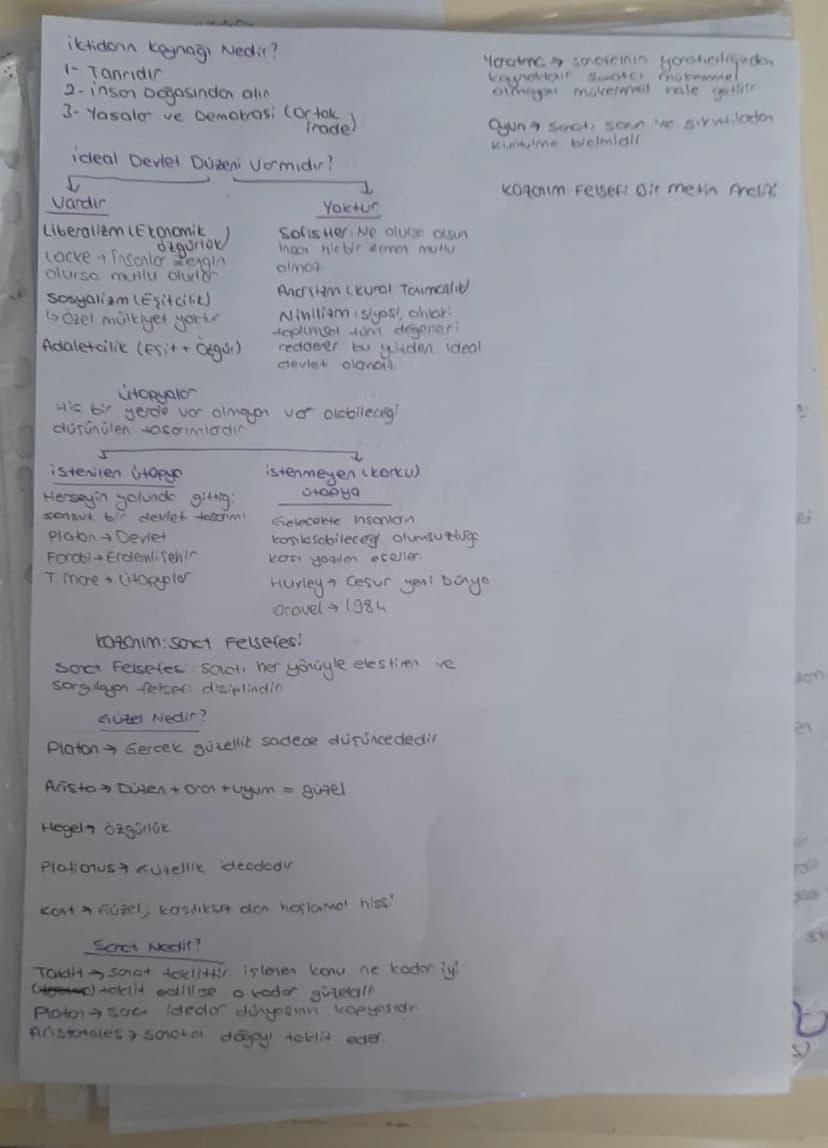 iktidarın Kaynağı Nedir?
1- Tanrıdır
2- insan Doğasından alın
3- Yasalar ve Demokrasi (ortak irade)
ideal Devlet Düzeni Varmıdır?
Vardır
Liberalizm (Ekonomik özgürlük)
Locke → İnsanlar zengin
olursa mutlu olurlar
Sosyalizm (Eşitcilik)
↳ özel mülkiyet yoktur
Adaletcilik (Eşit + Özgür)
Yoktur
Sofistler: Ne olursa olsun
insan hiç bir zaman mutlu
olmaz
Anarşizm (kural Tanımazlık)
Nihilizm: siyasi, ahlaki
toplumsal tüm değerleri
reddeder bu yüzden ideal
devlet olamaz
ütopyalar
Hiç bir yerde var olmayan var olabileceği
düşünülen tasarımlardır
istenilen ütopya
Herseyin yolunda gittiği
bir devlet tasarımı
Platon → Devlet
Farabi → Erdemli Şehir
T more → ütopyalar
istenmeyen (korku)
ütopya
Gelecekte insanların
karşılaşabileceği olumsuzluğa
karşı yazılan eserler
Huxley → Cesur yeni Dünya
Oravel → 1984
Kazanım: Sanat Felsefesi
Sanat Felsefesi: Sanatı her yönüyle eleştiren ve
sorgulayan felsefi disiplindir
Güzel Nedir?
Platon → Gercek güzellik sadece düşüncededir
Aristo → Düzen + oran + uyum = güzel
Hegel → özgürlük
Plationus → Güzellik ideadadır
Kant → Güzel, kasılıksız alan hoşlanma hissi
Sanat Nedir?
Taklit → sanat taklittir. işlenen konu ne kadar iyi
taklit edilirse o kadar güzeldir
Platon → sanat idealar dünyasının kopyasıdır
Aristotales → sanatcı doğayı taklit eder
Yaratma → sanatcinin yaratıcılığından
kaynaklanır sanatcı mükemmel
olmayanı mükemmel hale getirir
Oyun → sanatı sorun ve sıkıntılardan
kurtulma bicimidir
Kazanım: Felsefi Bir Metin Analizi